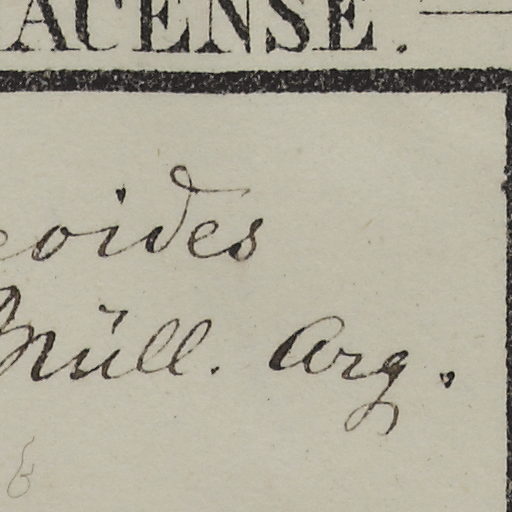 ACENSE.
eoides
Müll. Arg.